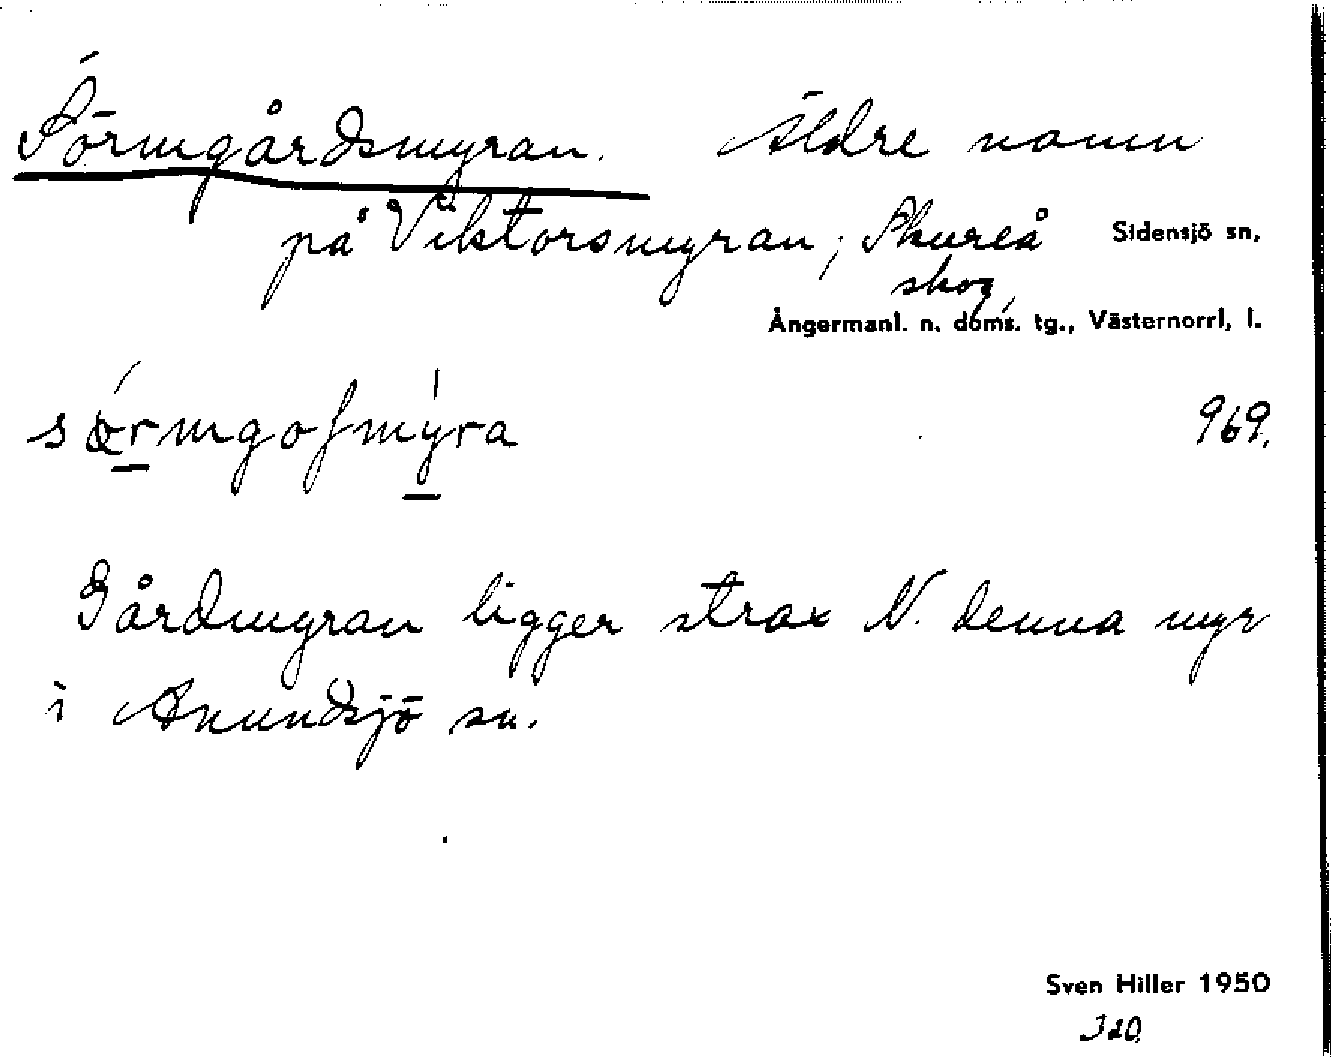 Sörmgårdsmyran. Äldre namn
på Viktorsmyran, Skureå Sidensjö sn,
skog,
Ångermanl. n. doms. tg., Västernorrl, l.
særmgoſmýra 969.
Gårdmyran ligger strax N. denna myr
i Anundsjö sn.
Sven Hiller 1950